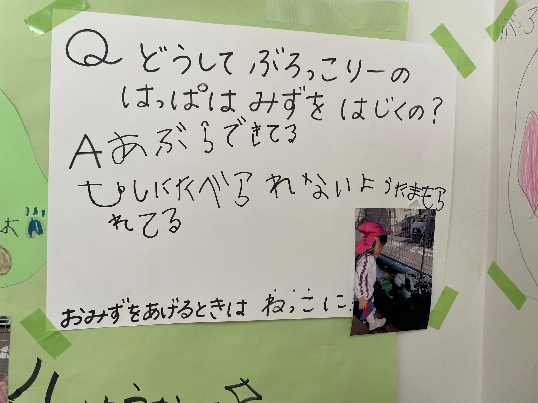 Q どうして ぶろっこりーの
はっぱは みずを はじくの?
A あぶらできてる
むしにたべられないようにまもら
れてる
おみずをあげるときは ねっこに